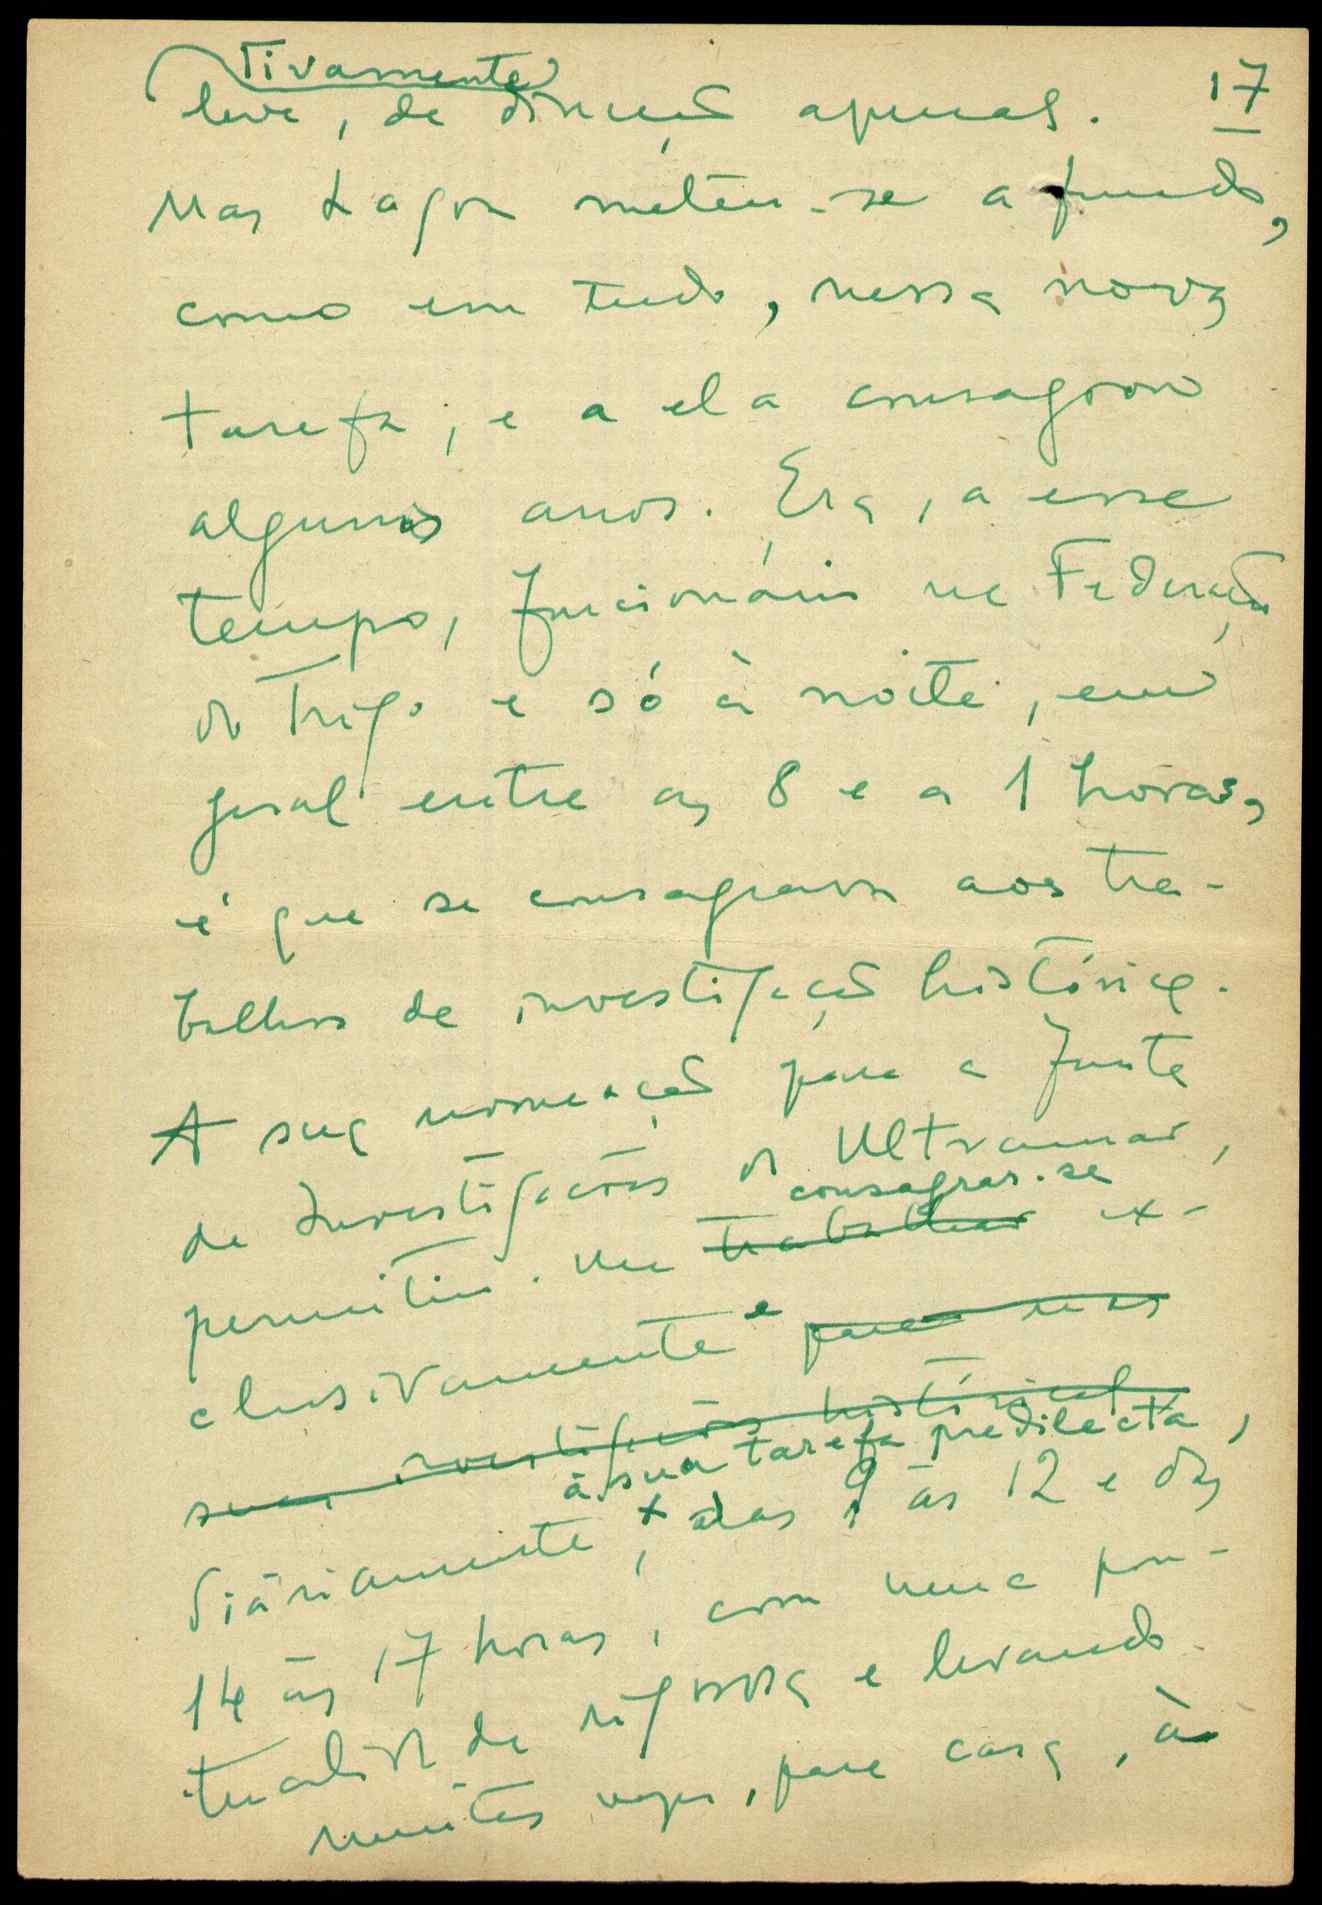 tivamente 17
leve, de direcção apenas.
Mas Lagoa meteu-se a fundo,
como em tudo, nessa nova
tarefa, e a ela consagrou
alguns anos. Era, a esse
tempo, funcionário na Federação
do Trigo e só à noite, em
geral entre as 8 e a 1 horas,
é que se consagrava aos tra-
balhos de investigação histórica.
A sua nomeação para a Junta
de Investigações do Ultramar,
consagrar-se
permitiu-lhe trabalhar ex-
clusivamente e para nas
suas investigações históricas
à sua tarefa predilecta,
diàriamente, das 9 às 12 e das
14 às 17 horas, com uma pon-
tualidade rigorosa e levando
muitas vezes, para casa, à